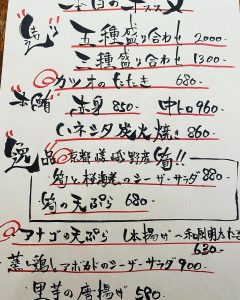 本日のオススメ
五種盛り合わせ 2000-
三種盛り合わせ 1300-
カツオのたたき 680-
本鮪 赤身 850- 中トロ 960-
ハネシタ炭火焼き 860-
逸品 京都嵯峨野産 筍!!
筍と桜海老のシーザーサラダ 880-
筍の天ぷら 680-
アナゴの天ぷら 1本揚げ
630-
蒸し鶏とアボカドのシーザーサラダ 900-
里芋の唐揚げ 580-